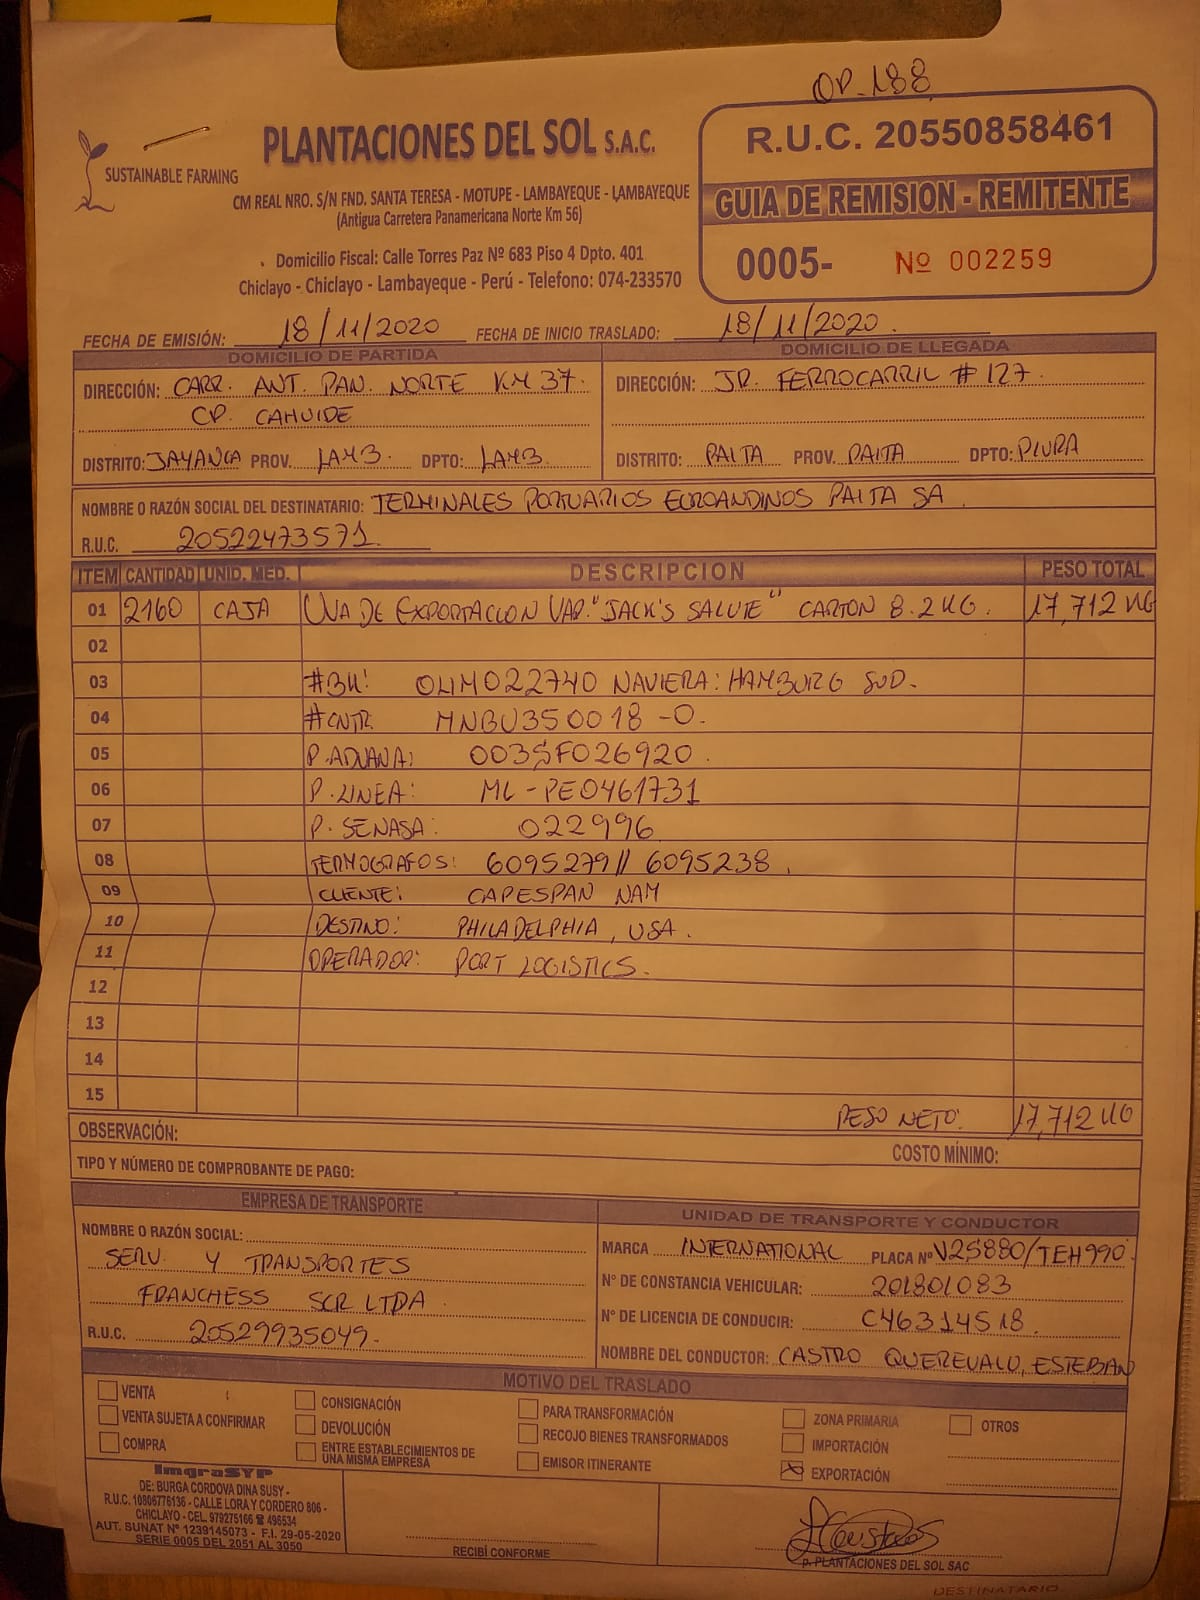 OP-188
SUSTAINABLE FARMING
PLANTACIONES DEL SOL S.A.C.
CM REAL NRO. S/N FND. SANTA TERESA - MOTUPE - LAMBAYEQUE - LAMBAYEQUE
(Antigua Carretera Panamericana Norte Km 56)
Domicilio Fiscal: Calle Torres Paz Nº 683 Piso 4 Dpto. 401
Chiclayo - Chiclayo - Lambayeque - Perú - Telefono: 074-233570
R.U.C. 20550858461
GUIA DE REMISION - REMITENTE
0005- Nº 002259
FECHA DE EMISIÓN: 18/11/2020 FECHA DE INICIO TRASLADO: 18/11/2020.
DOMICILIO DE PARTIDA
DIRECCIÓN: CARR. ANT. PAN. NORTE KM 37.
CP. CAHUIDE
DISTRITO: JAYANCA PROV. LAMB. DPTO: LAMB.
DOMICILIO DE LLEGADA
DIRECCIÓN: JR. FERROCARRIL # 127.
DISTRITO: PAITA PROV. PAITA DPTO: PIURA
NOMBRE O RAZÓN SOCIAL DEL DESTINATARIO: TERMINALES PORTUARIOS EUROANDINOS PAITA SA
R.U.C. 20522473571.
ITEM CANTIDAD UNID. MED. DESCRIPCION PESO TOTAL
01 2160 CAJA UVA DE EXPORTACION VAR. "JACK'S SALUTE" CARTON 8.2KG. 17,712 KG
02
03 #BK: OLIM022740 NAVIERA: HAMBURG SUD.
04 #CNTR. MNBU350018-0.
05 P.ADUANA: 003SF026920.
06 P.LINEA: ML-PE0461731
07 P. SENASA: 022996
08 TERMOGRAFOS: 6095279// 6095238.
09 CLIENTE: CAPESPAN NAM
10 DESTINO: PHILADELPHIA, USA.
11 OPERADOR: PORT LOGISTICS.
12
13
14
15
PESO NETO: 17,712 KG
OBSERVACIÓN:
COSTO MÍNIMO:
TIPO Y NÚMERO DE COMPROBANTE DE PAGO:
EMPRESA DE TRANSPORTE
NOMBRE O RAZÓN SOCIAL:
SERV. Y TRANSPORTES
FRANCHESS SCR LTDA
R.U.C. 20529935049.
UNIDAD DE TRANSPORTE Y CONDUCTOR
MARCA INTERNATIONAL PLACA Nº V2S880/TEH990
Nº DE CONSTANCIA VEHICULAR: 201801083
Nº DE LICENCIA DE CONDUCIR: C46314518.
NOMBRE DEL CONDUCTOR: CASTRO QUEREVALU, ESTEBAN
MOTIVO DEL TRASLADO
VENTA
VENTA SUJETA A CONFIRMAR
COMPRA
CONSIGNACIÓN
DEVOLUCIÓN
ENTRE ESTABLECIMIENTOS DE
UNA MISMA EMPRESA
PARA TRANSFORMACIÓN
RECOJO BIENES TRANSFORMADOS
EMISOR ITINERANTE
ZONA PRIMARIA
IMPORTACIÓN
EXPORTACIÓN
OTROS
ImgraSYP
DE: BURGA CORDOVA DINA SUSY -
R.U.C. 10806776136 - CALLE LORA Y CORDERO 806 -
CHICLAYO - CEL. 979275166 ☎ 496534
AUT. SUNAT Nº 1239145073 - F.I. 29-05-2020
SERIE 0005 DEL 2051 AL 3050
RECIBÍ CONFORME
p. PLANTACIONES DEL SOL SAC
DESTINATARIO